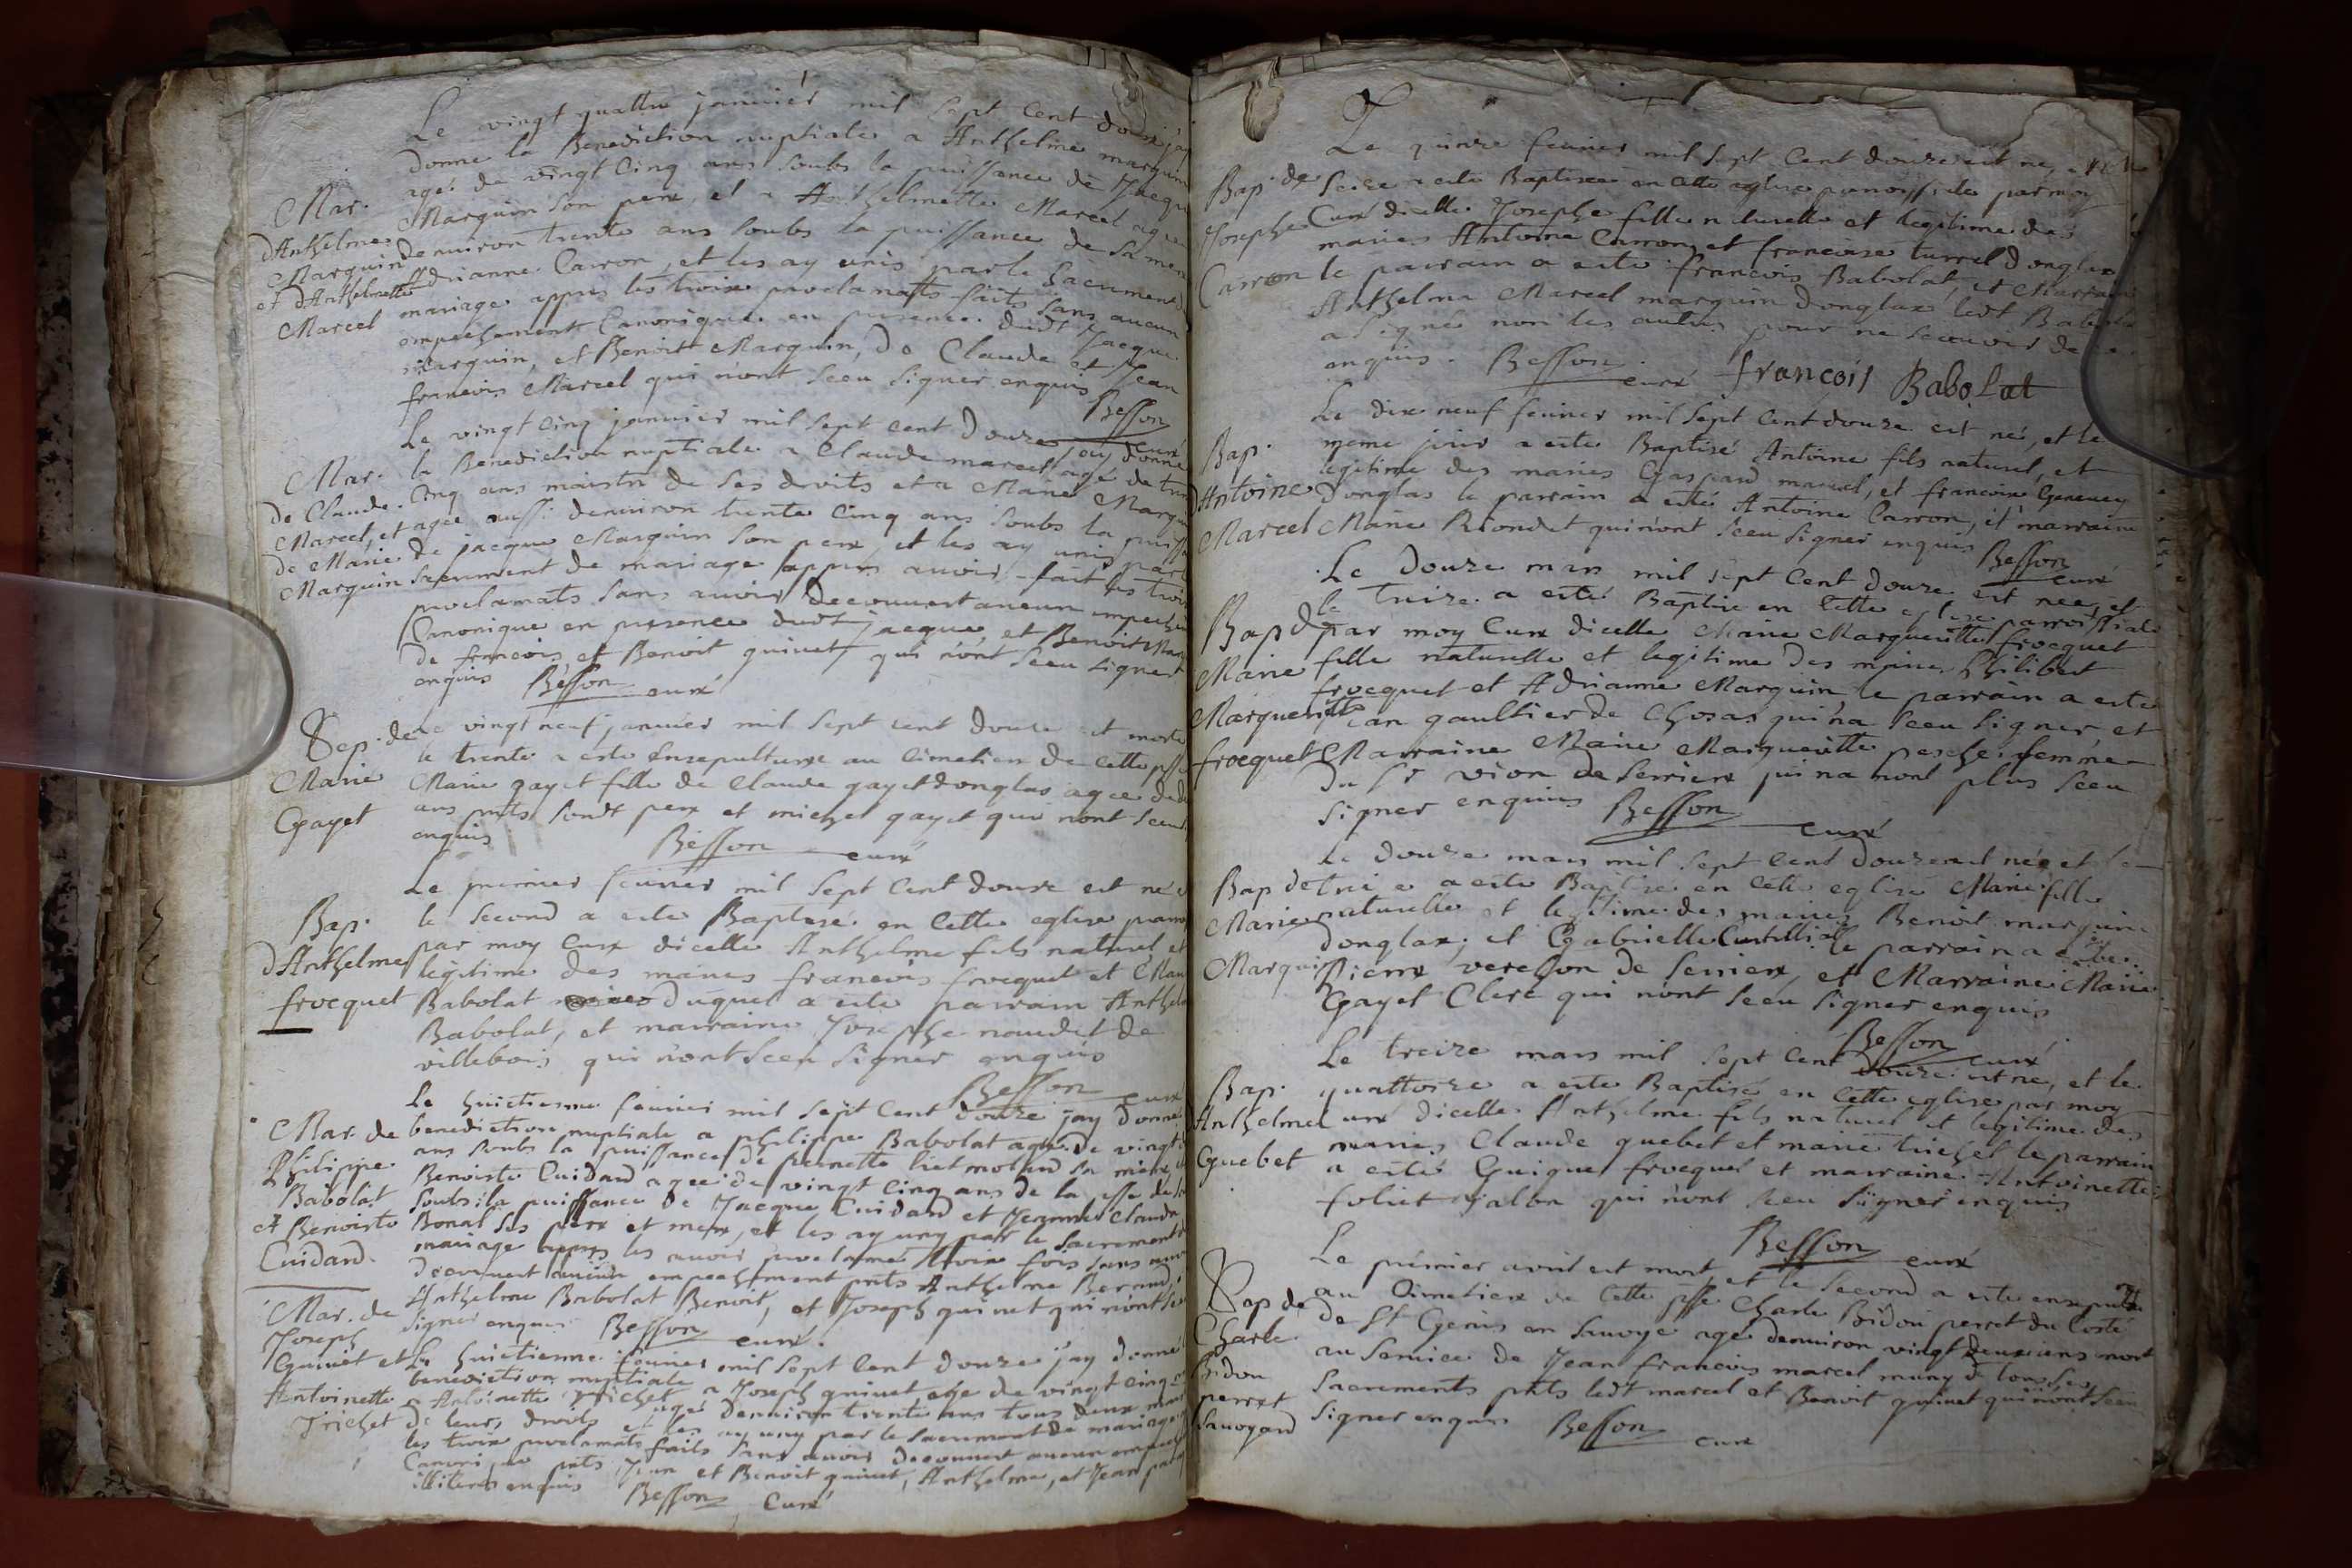 Le vingt quattre janvier mil sept cent douze j'ay
donne la Benediction nuptiale a Anthelme marquin
agé de vingt cinq ans soubs la puissance de Jacque
Mar.
d'Anthelme
Marquin
et d'Anthelmette
Marcel
Marquin son pere, et a Anthelmette Marcel agee
denuiron trente ans soubs la puissance de sa mere
Adrianne Carron, et les ay unis par le sacrement d
mariage appres les troix proclamatts faits sans aucun
empechement Canonique en presence dudt Jacque
Marquin, et Benoitt Marquin, de Claude et Jean
francois Marcel qui n'ont sceu signer enquis
Besson
curé
Le vingt cinq janvier mil sept cent douze jay donné
Mar.
de Claude
Marcel, et
de Marie
Marquin
la Benediction nuptiale a Claude marcel agé de tren
cinq ans maistre de ses droits et a Marie Marqui
agee aussi denuiron trente cinq ans soubs la puissa
de jacque Marquin son pere, et les ay unis par l
sacrement de mariage appres avoir fait les troix
proclamats sans avoir decouuert aucun empeche
Canonique en presence dudt jacque, et Benoit Mar
de francois, et Benoit quinet, qui n'ont sceu signer
enquis Besson curé
Sep. de
Marie
Gayet
Le vingt neuf janvier mil sept cent douze est morte
le trente a esté ensepulturée au Cimetiere de cette psse
Marie gayet fille de Claude gayet donglas agee de d
ans pnts sondt pere et michel gayet qui nont sceu
enquis
Besson curé
Le premier feurier mil sept cent douze est né
Bap.
d'Anthelme
frocquet
le second a esté Baptisé en cette eglise paro
par moy Curé dicelle Anthelme fils naturel, et
legitime des mariés francois frocquet et Mari
Babolat duquel a esté parrain Anthel
Babolat, et marraine Josephe naudet de
villebois qui n'ont sceu signer enquis
Besson curé
Le huictieme feurier mil sept cent douze jay donné
Mar. de
Philippe
Babolat
et Benoiste
Cuidard.
benediction nuptiale a philippe Babolat agé de vingt
ans soubs la puissance de pernette lietmoland sa mere, et
Benoiste Cuidard agee de vingt cinq ans de la psse de
soubs la puissance de Jacque Cuidard et Jeanne Clauda
Bonat ses pere et mere, et les ay uny par le sacrement
mariage appres les avoir proclamé troix fois sans avoir
decouuert aucun empechement pnts Anthelme Berrand,
Anthelme Babolat Benoit, et Joseph quinet qui n'ont sce
signer enquis Besson curé.
Mar. de
Joseph
Quinet et
Antoinette
Trichet
Le huictieme feurier mil sept cent douze j'ay donné
benediction nuptiale a Joseph quinet agé de vingt cinq
a Antoinette trichet agé denuiron trente ans tous deux mai
de leurs droits et les ay uny par le sacrement de mariage
les troix proclamats faits sans avoir decouuert aucun empech
pnts Jean et Benoit quinet, Anthelme, et Jean
illiteres enquis
Besson Curé
Le quinze feurier mil sept cent douze est née
Bap. de
Josephe
Carron
Seize a esté Baptisee en cette eglise paroissiale par moy
Curé dicelle Josephe fille naturelle et legitime des
mariés Antoine Carron, et francoise turrel donglas
le parrain a esté francois Babolat, et Marraine
Anthelma Marcel marquin donglas ledt Babolat
a signé non les autres pour ne scauoir de ce
enquis. Besson curé francois Babolat
Le dix neuf feurier mil sept cent douze est né, et le
Bap.
d'Antoine
Marcel
meme jour a esté Baptisé Antoine fils naturel, et
legitime des mariés Gaspard marcel, et francoise Genevey
donglas le parrain a esté Antoine Carron, et marraine
Marie Riondet qui n'ont sceu signer enquis Besson
curé
Le douze mars mil sept cent douze est nee, et
Bap de
Marie
Marguerite
frocquet
le treize a esté Baptisée en cette eglise parroissiale
par moy Curé dicelle Marie Margueritte frocquet
fille naturelle et legitime des mariés Philibert
frocquet et Adrianne Marquin le parrain a esté
Jean gaultier de Chosas qui n'a sceu signer et
Marraine Marie Marguerite pesche femme
du Sr vion de Serrieres qui na non plus sceu
signer enquis Besson curé
Le douze mars mil sept cent douze est née et le
Bap de
Marie
Marquin
treize a esté Baptisee en cette eglise Marie fille
naturelle et legitime des mariés Benoit marquin
donglas, et Gabrielle Curtilliat le parrain a esté
Pierre verchon de Serrieres, et Marraine Marie
Gayet Clerc qui n'ont sceu signer enquis
Besson curé
Le treize mars mil sept cent douze est né, et le
Bap.
Anthelme
Guebet
quattorze a esté Baptisé en cette eglise par moy
curé dicelle Anthelme fils naturel et legitime des
mariés Claude guebet et marie trichet le parrain
a esté Guigue frocquet et marraine Antoinette
foliet Jalon qui n'ont sceu signer enquis
Besson curé
Le premier avril est mort, et le second a esté ensepulturé
Sep de
Charle
Bidon
perret
savoyard
au Cimetiere de cette psse Charle Bidon perret du Costé
de St Genis en Savoye agé denuiron vingt deux ans mort
au service de Jean francois marcel muny de tous ses
sacrements pnts ledt marcel et Benoit quinet qui n'ont sceu
signer enquis Besson curé